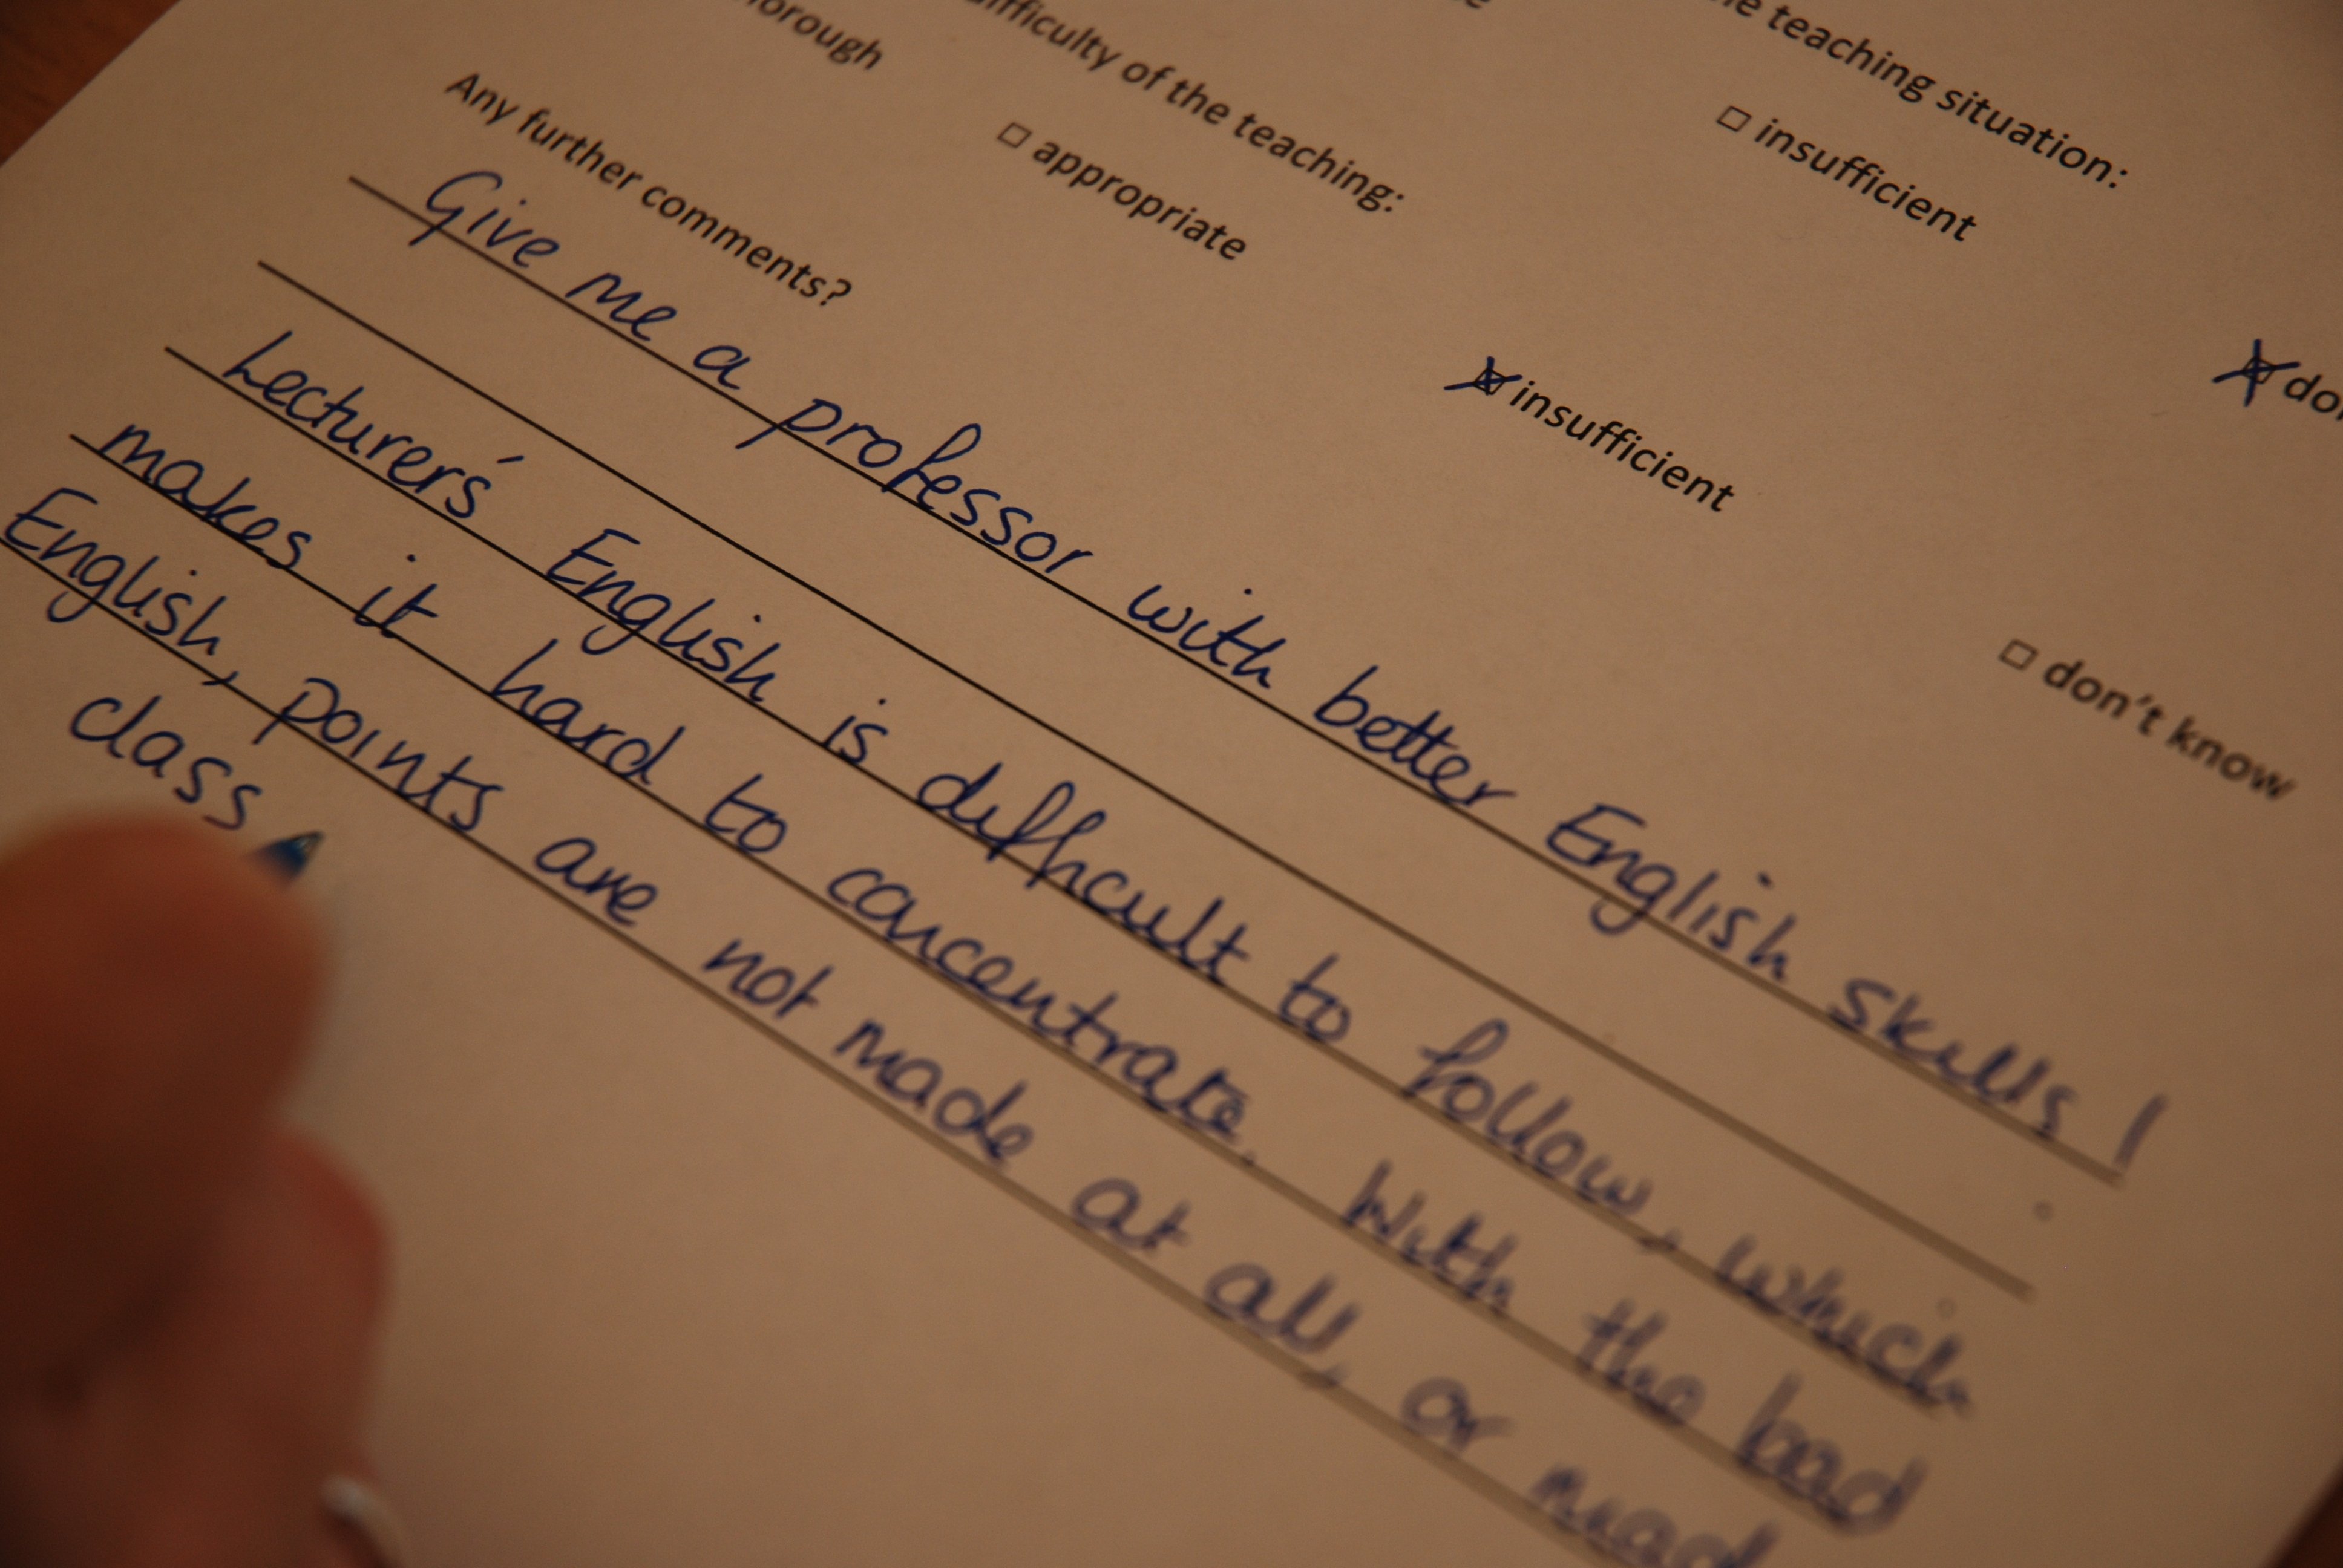 teaching situation:
insufficient
difficulty of the teaching:
appropriate
insufficient
don't know
Any further comments?
Give me a professor with better English skills!
Lecturers' English is difficult to follow, which
makes it hard to concentrate. With the bad
English, points are not made at all, or
class